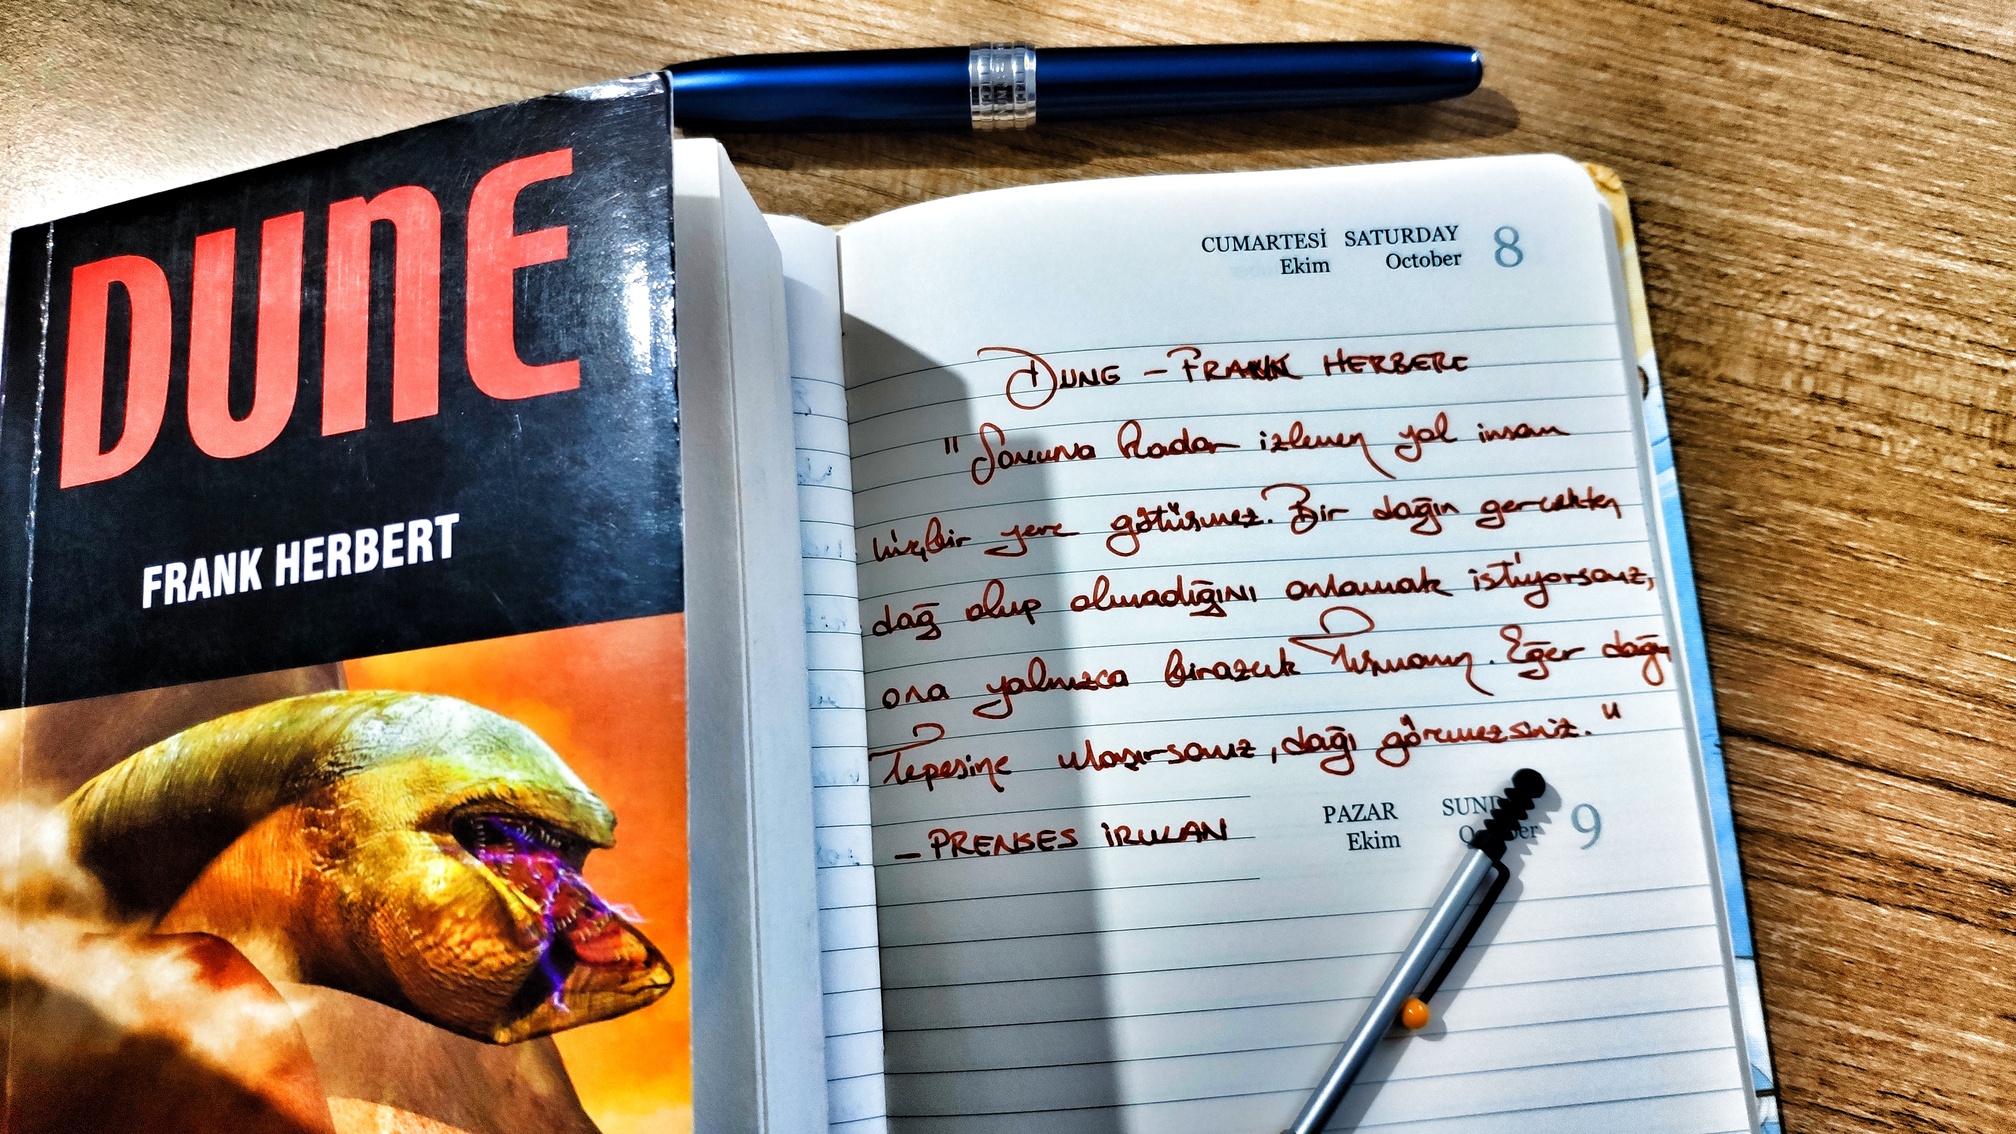 DUNE
FRANK HERBERT
CUMARTESİ SATURDAY 8
Ekim October
DUNE – FRANK HERBERT
"Sonuna kadar izlenen yol insanı
hiçbir yere götürmez. Bir dağın gerçekten
dağ olup olmadığını anlamak istiyorsanız,
ona yalnızca birazcık tırmanın. Eğer dağın
tepesine ulaşırsanız, dağı göremezsiniz."
– PRENSES İRULAN
PAZAR 9
Ekim